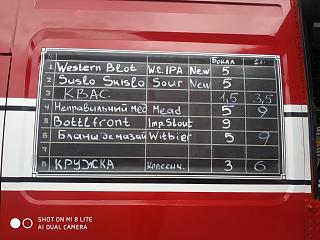 № Бокал 1л.
1 Western Blot W.C. IPA New 5
2 Suslo Skislo Sour New 5
3 КВАС 1,5 3,5
4 Неправильный мёд Mead 5 9
5 Bottlfront Imp. Stout 9
6 Бланш де мазай Witbier 5 9
7
8 КРУЖКА Классич. 3 6
SHOT ON MI 8 LITE
AI DUAL CAMERA